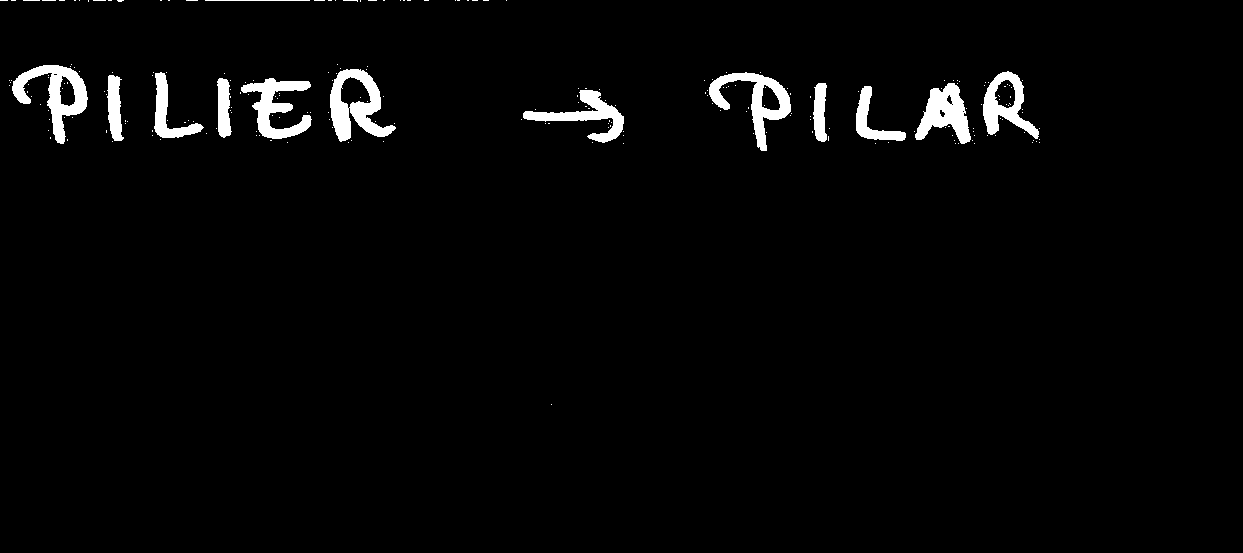 PILIER → PILAR